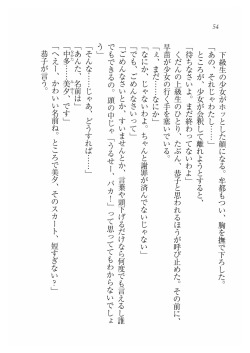 54
下級生の少女がホッとした顔になる。牟都もつい、胸を撫で下ろした。
「あの、それじゃわた……」
ところが、少女が会釈して離れようとすると、
「待ちなさいよ。まだ終わってないわよ」
くだんの上級生のひとり、たぶん、恭子と思われるほうが呼び止めた。その前に、
早苗が少女の行く手を塞いでいる。
「え、まだ……なにか」
「なにか、じゃないわよ。ちゃんと謝罪が済んでないじゃない」
「でも、ごめんなさいって」
「ごめんなさいとか、すいませんとか、言葉や頭下げるだけなら何度でも言えるし誰
でもできるの。頭の中じゃ「うるせー、バカ!」って思っててもわからないでしょ
う」
「そんな……じゃあ、どうすれば……」
「あんた、名前は」
「中多……美夕、です」
「へえー、かわいい名前ね。ところで美夕、そのスカート、短すぎない?」
恭子が言う。